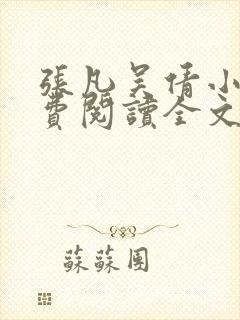 張凡吴倩小
費閱讀全文
蘇蘇團